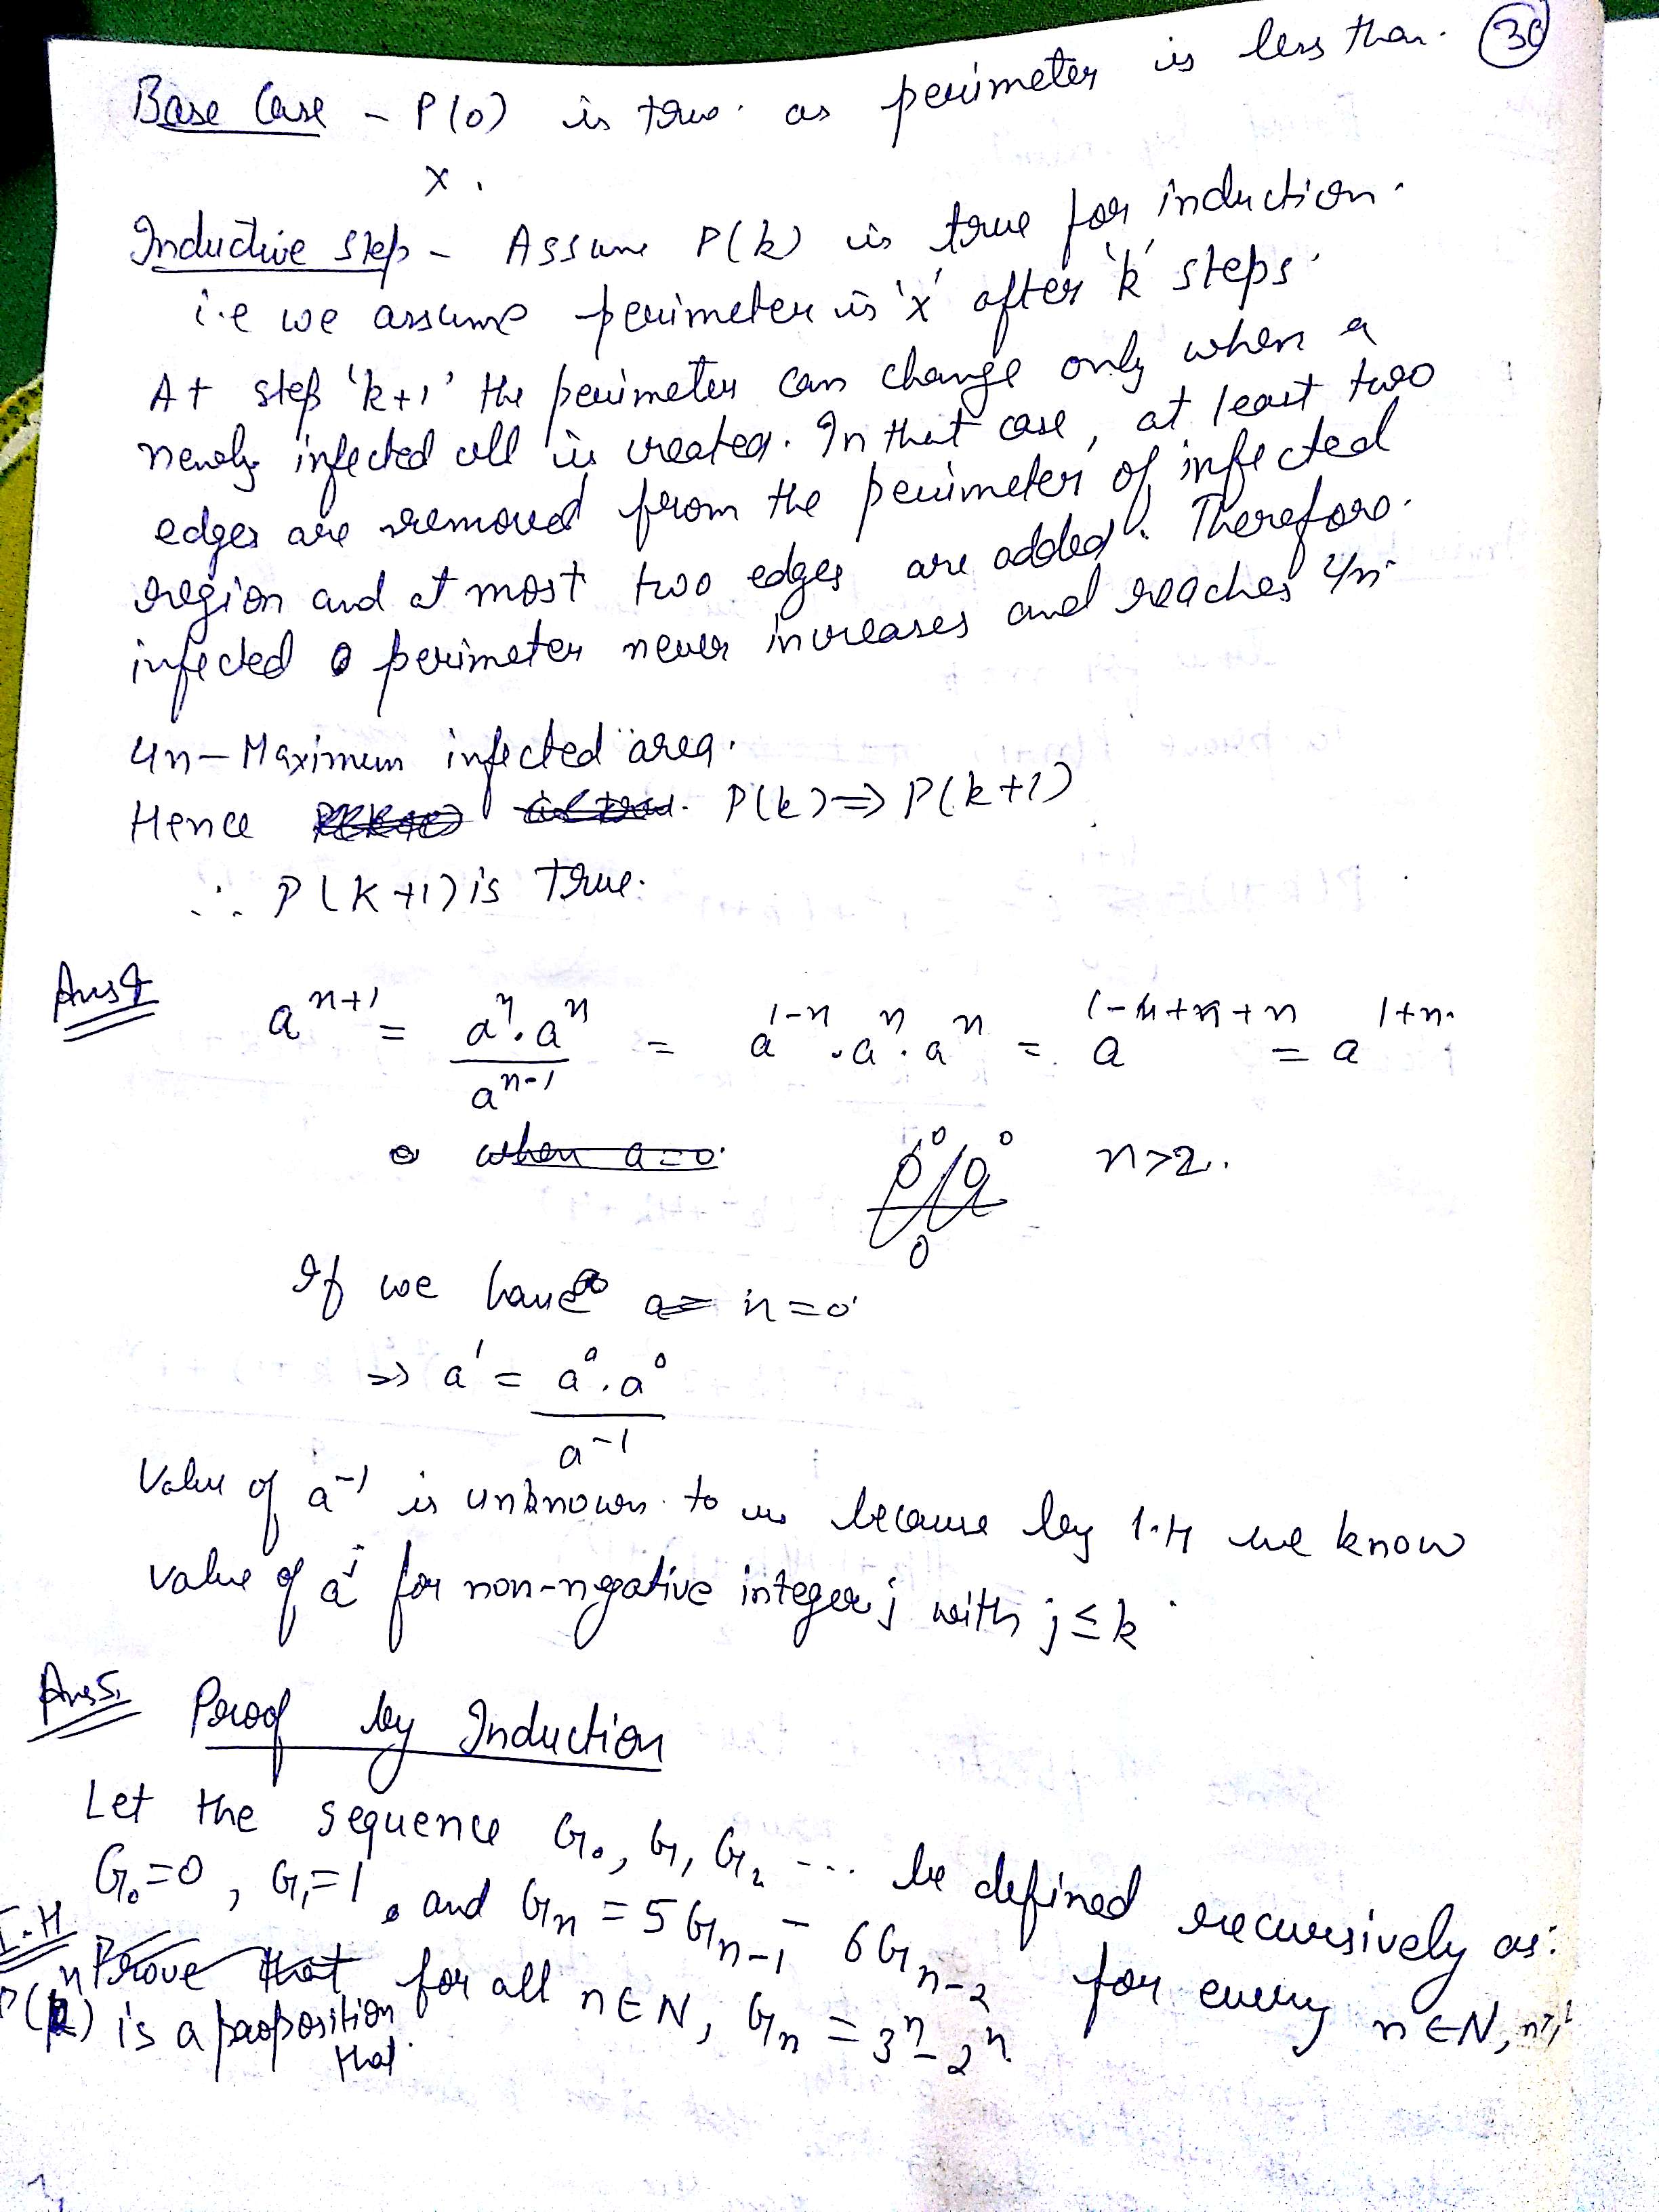 30
Base Case - P(0) is true as perimeter is less than
x.
Inductive step - Assume P(k) is true for induction.
i.e we assume perimeter is 'x' after 'k' steps.
At step 'k+1' the perimeter can change only when a
newly infected cell is created. In that case, at least two
edges are removed from the perimeter of infected
region and at most two edges are added. Therefore
infected perimeter never increases and reaches 4n
4n - Maximum infected area.
Hence P(k) => P(k+1)
∴ P(k+1) is true.
Ans4
a^{n+1} = \frac{a^n . a^n}{a^{n-1}} = a^{1-n} . a^n . a^n = a^{1-n+n+n} = a^{1+n}
when a=0 n>2.
If we have n=0
=> a^1 = \frac{a^0 . a^0}{a^{-1}}
Value of a^{-1} is unknown to us because by I.H we know
value of a^j for non-negative integer j with j ≤ k.
Ans5. Proof by Induction
Let the sequence G₀, G₁, G₂ ... be defined recursively as:
G₀=0, G₁=1, and G_n = 5G_{n-1} - 6G_{n-2} for every n∈N,
I.H Prove that for all n∈N, G_n = 3^n - 2^n
is a proposition that